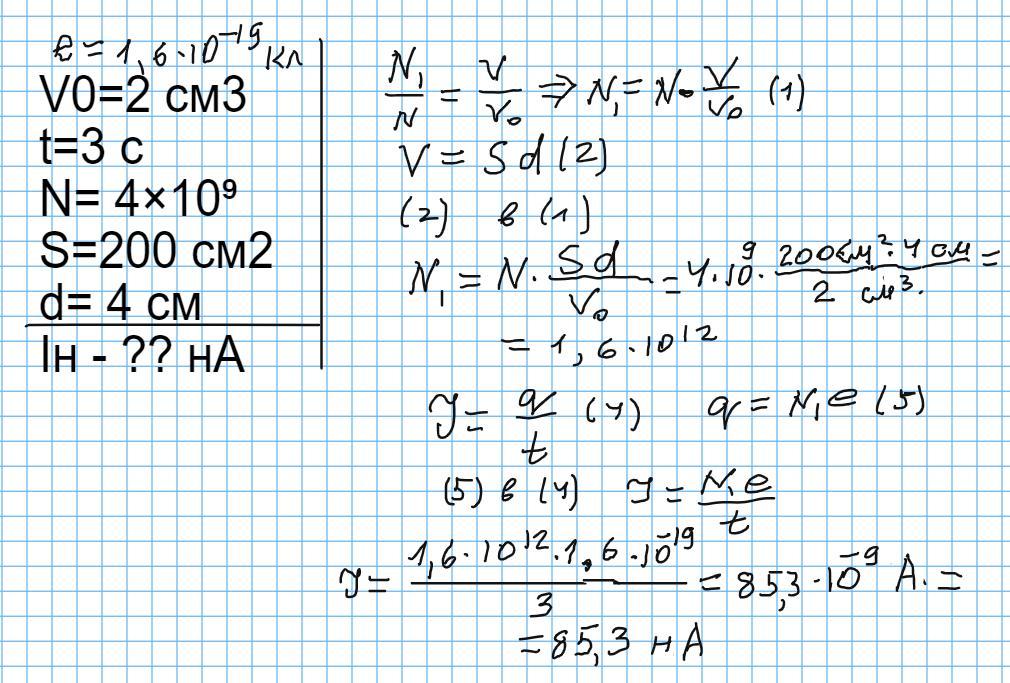 e = 1,6·10⁻¹⁹ Кл
V0=2 см3
t=3 с
N= 4×10⁹
S=200 см2
d= 4 см
Iн - ?? нА
N₁/N = V/V₀ ⇒ N₁ = N·V/V₀ (1)
V = Sd (2)
(2) в (1)
N₁ = N · Sd/V₀ = 4·10⁹ · 200см²·4 см/2 см³ =
= 1,6·10¹²
I = q/t (4) q = N₁e (5)
(5) в (4) I = N₁e/t
I = 1,6·10¹²·1,6·10⁻¹⁹/3 = 85,3·10⁻⁹ А. =
= 85,3 нА